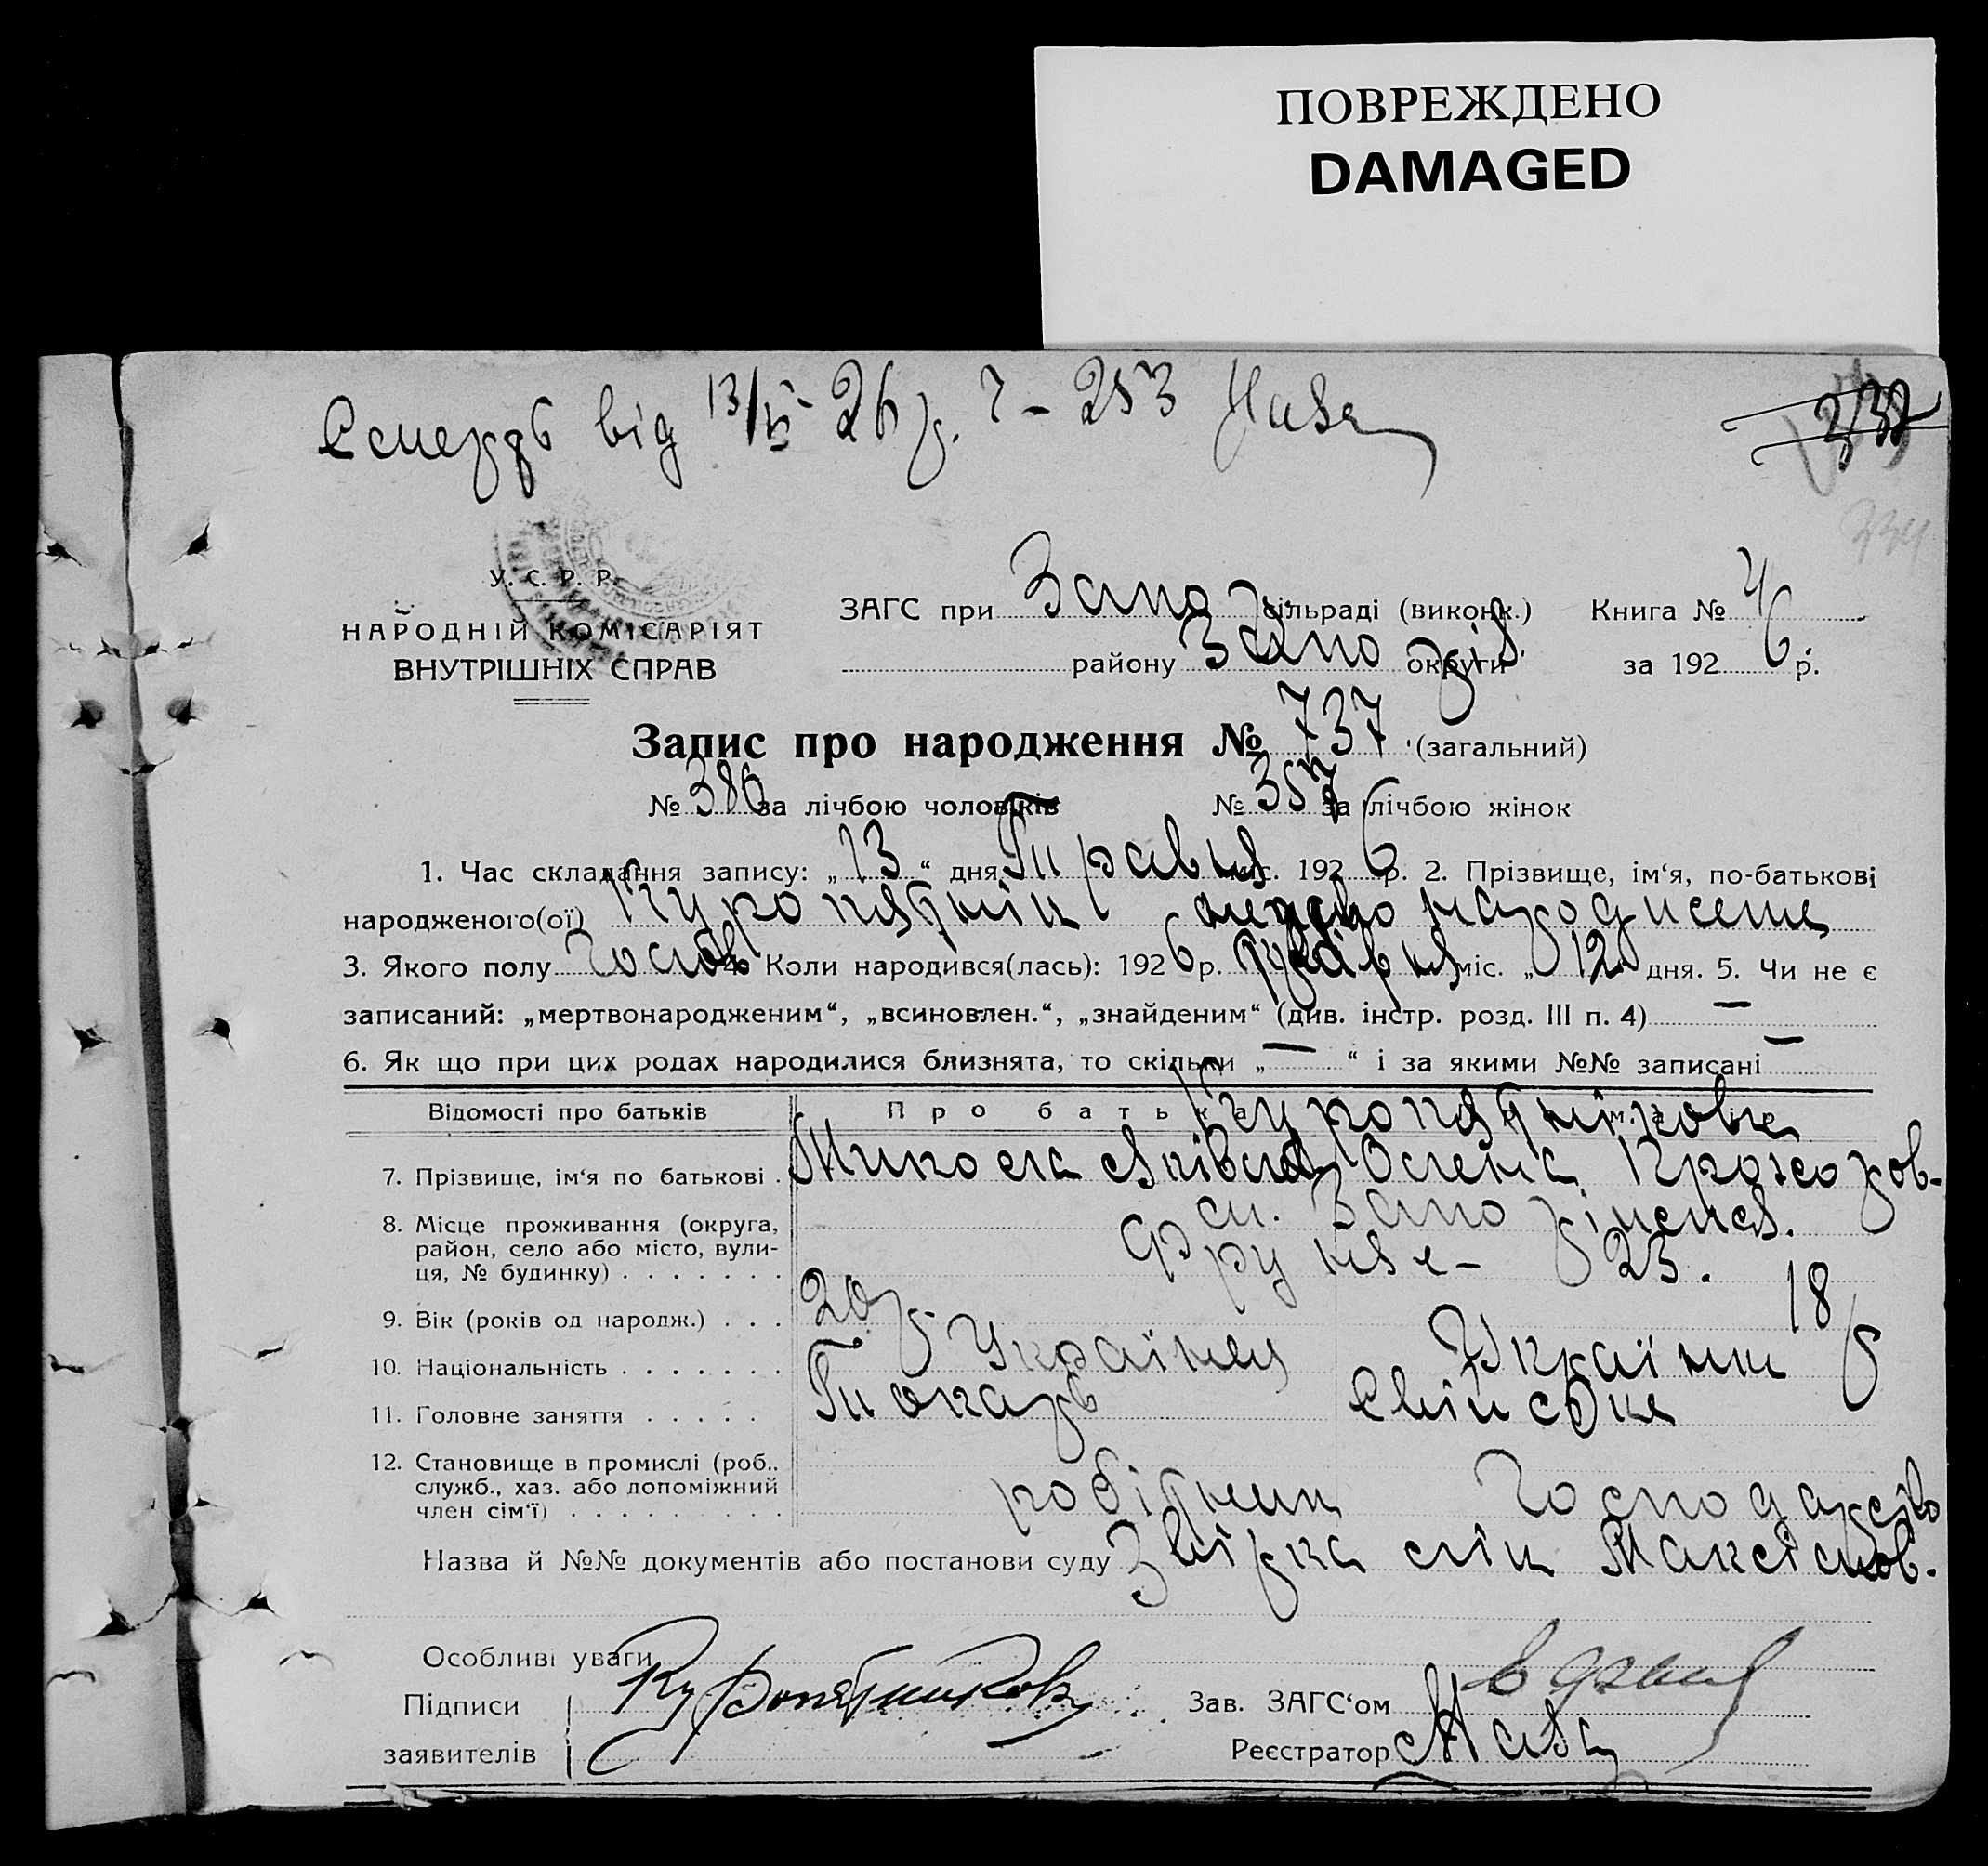 ПОВРЕЖДЕНО
DAMAGED
Смерть від 13/V-26 р. 7-253
У. С. Р. Р.
НАРОДНІЙ КОМІСАРІЯТ
ВНУТРІШНІХ СПРАВ
ЗАГС при Запоріз сільраді (виконк.) Книга № 4
району Запоріз округи за 1926 р.
Запис про народження № 737 (загальний)
№ 380 за лічбою чоловіків № 357 за лічбою жінок
1. Час складання запису: „13“ дня Травня міс. 1926 р. 2. Прізвище, ім‘я, по-батькові
народженого(ої) Куропятнік мертво народжене
3. Якого полу чолов 4. Коли народився(лась): 1926 р. травня міс. „12“ дня. 5. Чи не є
записаний: „мертвонародженим“, „всиновлен.“, „знайденим“ (див. інстр. розд. III п. 4) —
6. Як що при цих родах народилися близнята, то скільки „—“ і за якими №№ записані —
Відомості про батьків Про батька
Куропятнікови
7. Прізвище, ім‘я по батькові . Микола Яківл Олена Прохоров-
8. Місце проживання (округа,
район, село або місто, вули-
ця, № будинку) . . . . . . .
ст. Запоріжжя.
Фрунзе - 25.
9. Вік (років од народж.) . . . 20 р 18 р
10. Національність . . . . . . . Українец Українк
11. Головне заняття . . . . . Токарь Свійське
12. Становище в промислі (роб..
служб., хаз. або допоміжний
член сім‘ї) . . . . . . . . .
робітник Господарство
Назва й №№ документів або постанови суду Звірка
Особливі уваги
Підписи Куропятников Зав. ЗАГС‘ом
заявителів Реєстратор